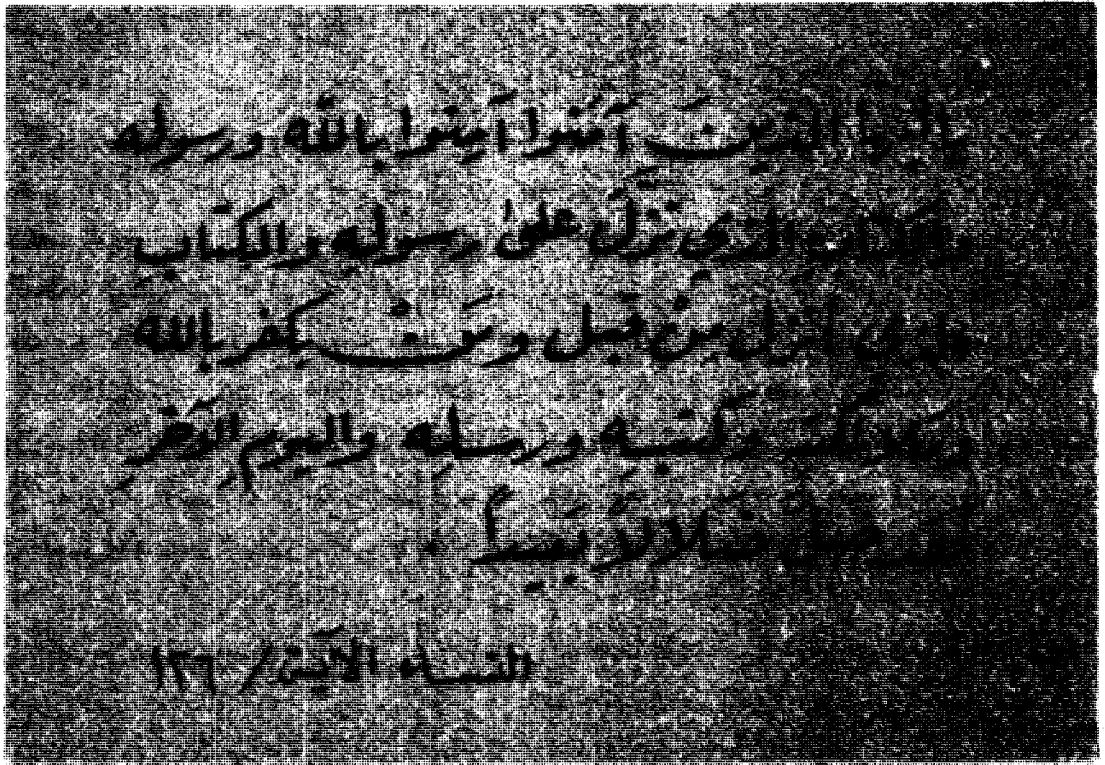 ياأيها الذينَ آمَنوا آمِنوا بالله ورسوله
والكتابِ الذي نَزَّلَ على رسولِهِ والكتابِ
الذي أنزل مِنْ قَبل ومَنْ يكفر بالله
وملائكته وكتبِهِ ورسلِهِ واليومِ الآخِرِ
فقد ضلَّ ضَلالاً بَعيداً .
النساء الآية / ١٣٦